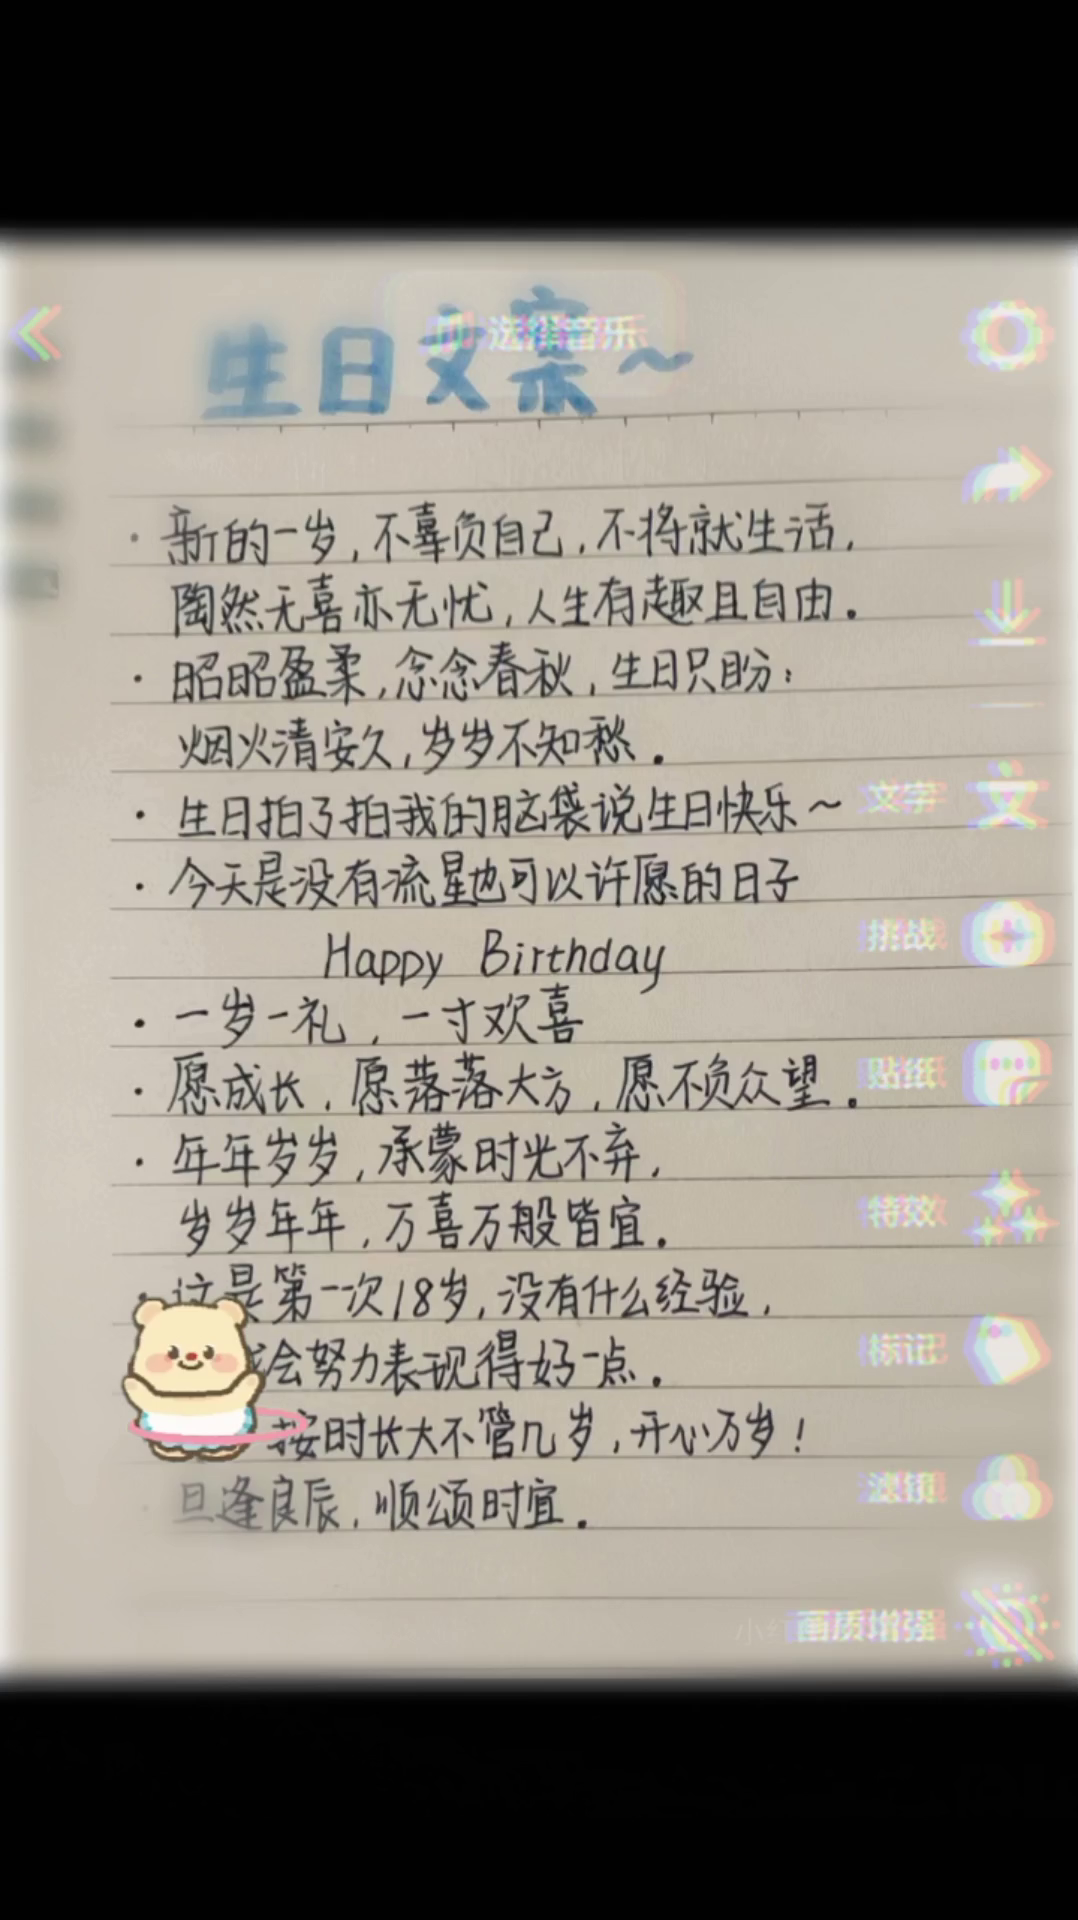 选择音乐
生日文案~
· 新的一岁,不辜负自己,不将就生活,
陶然无喜亦无忧,人生有趣且自由。
· 昭昭盈柔,念念春秋,生日只盼:
烟火清安久,岁岁不知愁。
· 生日拍了拍我的脑袋说生日快乐~
文字
· 今天是没有流星也可以许愿的日子
挑战
Happy Birthday
· 一岁一礼,一寸欢喜
· 愿成长,愿落落大方,愿不负众望。
贴纸
· 年年岁岁,承蒙时光不弃,
岁岁年年,万喜万般皆宜。
特效
· 这是第一次18岁,没有什么经验,
会努力表现得好一点。
标记
按时长大不管几岁,开心万岁!
滤镜
旦逢良辰,顺颂时宜。
画质增强